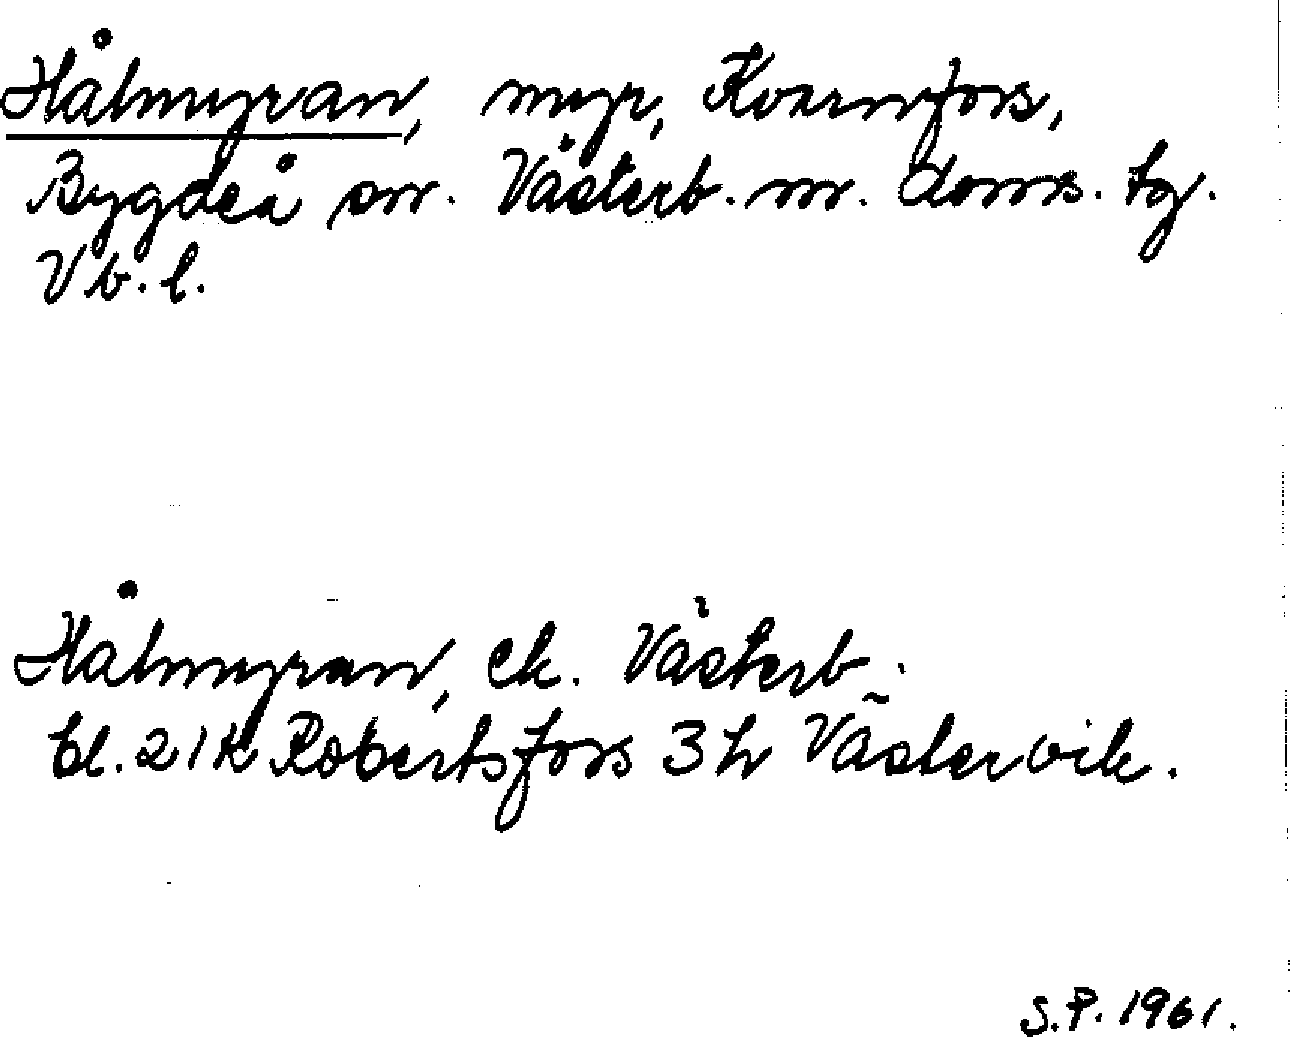 Hålmyran, myr, Kvarnfors,
Bygdeå sn. Västerb. n. doms. tg.
Vb. l.
Hålmyran, ek. Västerb.
bl. 21K Robertsfors 3h Västervik.
S.P. 1961.